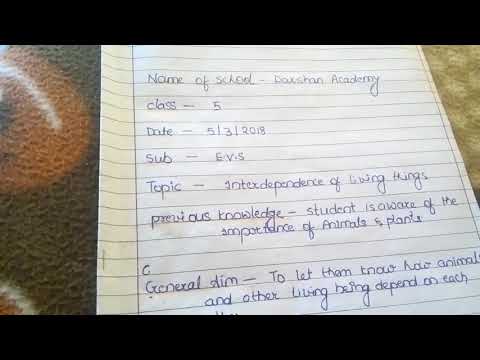 Name of School - Darshan Academy
class - 5
Date - 5/3/2018
Sub - E.V.S
Topic - Interdependence of Living things
previous knowledge - student is aware of the
importance of Animals & plants
C
General Aim - To let them know how animals
and other living being depend on each